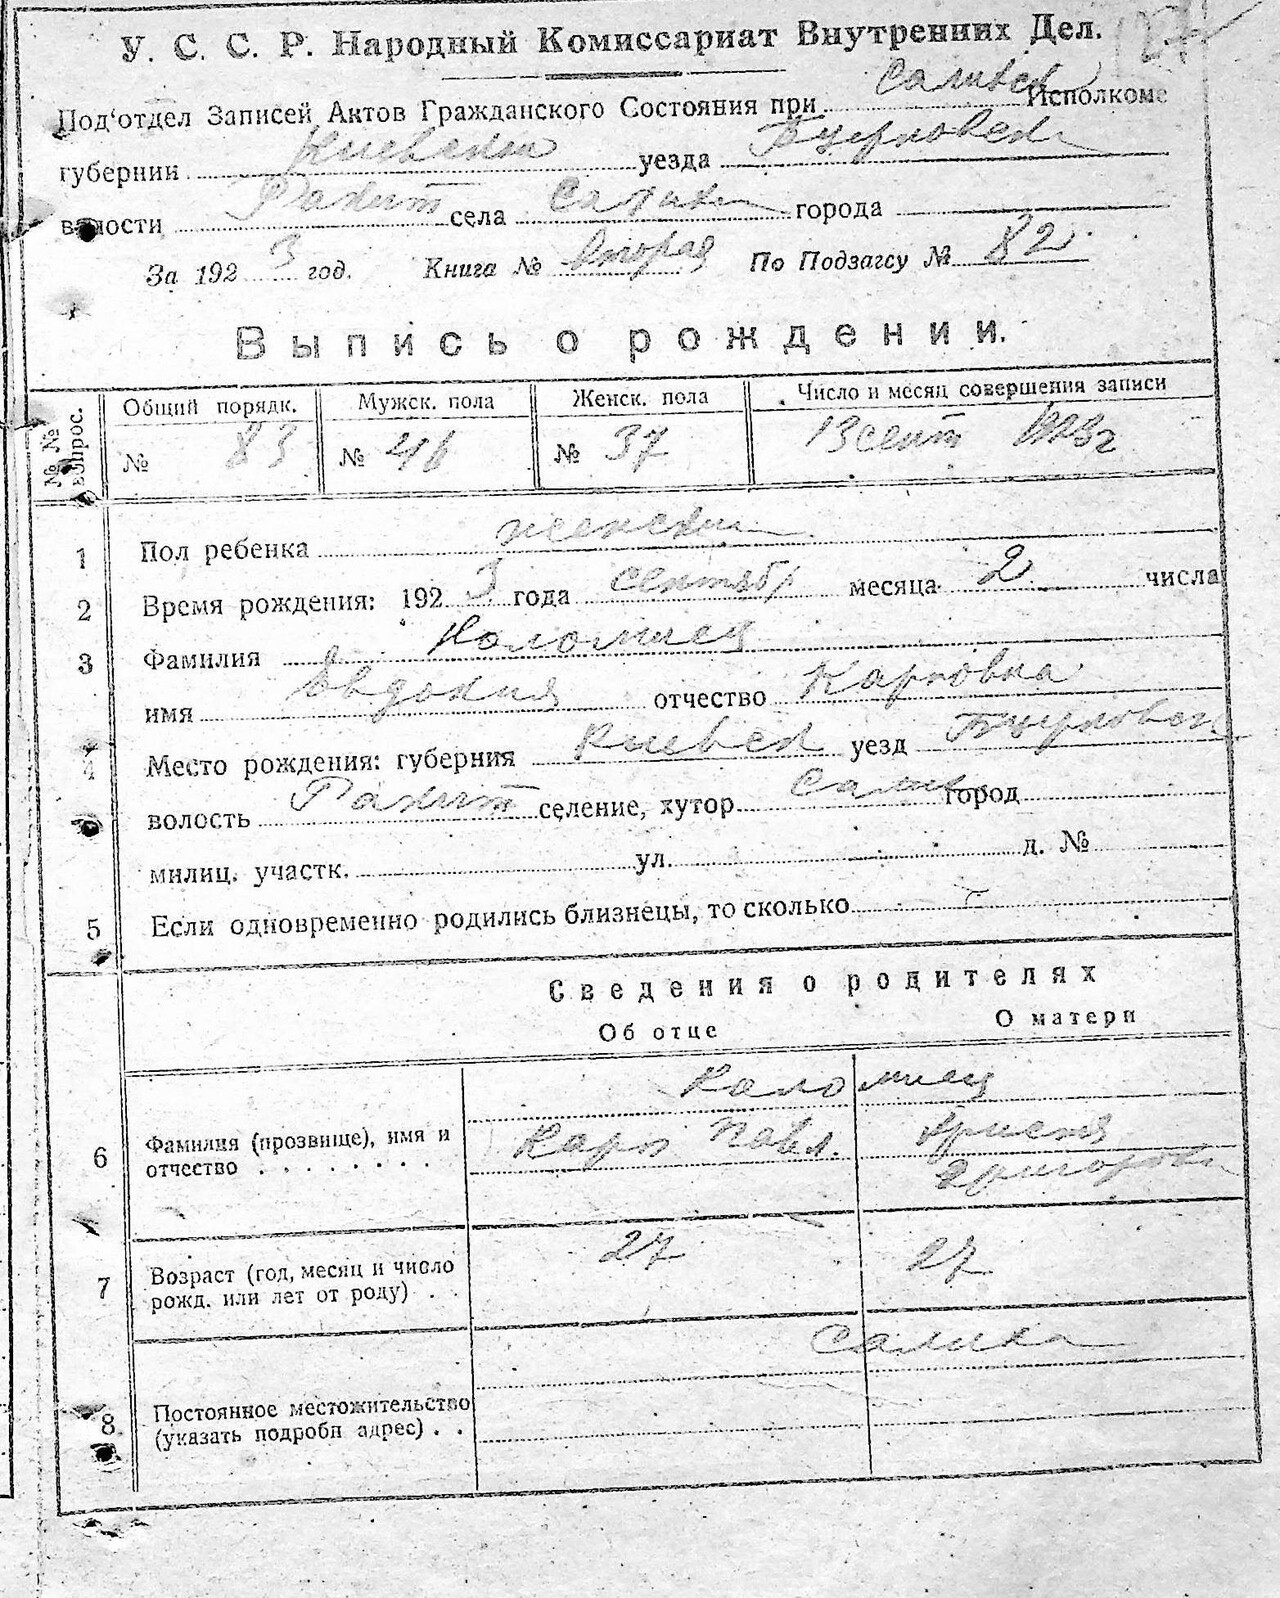 У. С. С. Р. Народный Комиссариат Внутренних Дел.
Под'отдел Записей Актов Гражданского Состояния при Исполкоме
губернии Киевской уезда Бцерковск
волости Ракит села города
За 1923 год. Книга № Вторая По Подзагсу № 82
Выпись о рождении.
№ № вопрос. Общий порядк. Мужск. пола Женск. пола Число и месяц совершения записи
№ 83 № 46 № 37 13 сент 1923 г
1 Пол ребенка женский
2 Время рождения: 1923 года сентябр месяца 2 числа
3 Фамилия Коломиец
имя Евдокия отчество Карповна
4 Место рождения: губерния Киевск уезд Бцерковск
волость Ракит селение, хутор город
милиц. участк. ул. д. №
5 Если одновременно родились близнецы, то сколько -
Сведения о родителях
Об отце О матери
Коломиец
6 Фамилия (прозвище), имя и отчество Карп Павл.
Григоровн
7 Возраст (год, месяц и число рожд. или лет от роду) 27 27
8 Постоянное местожительство (указать подробн адрес)